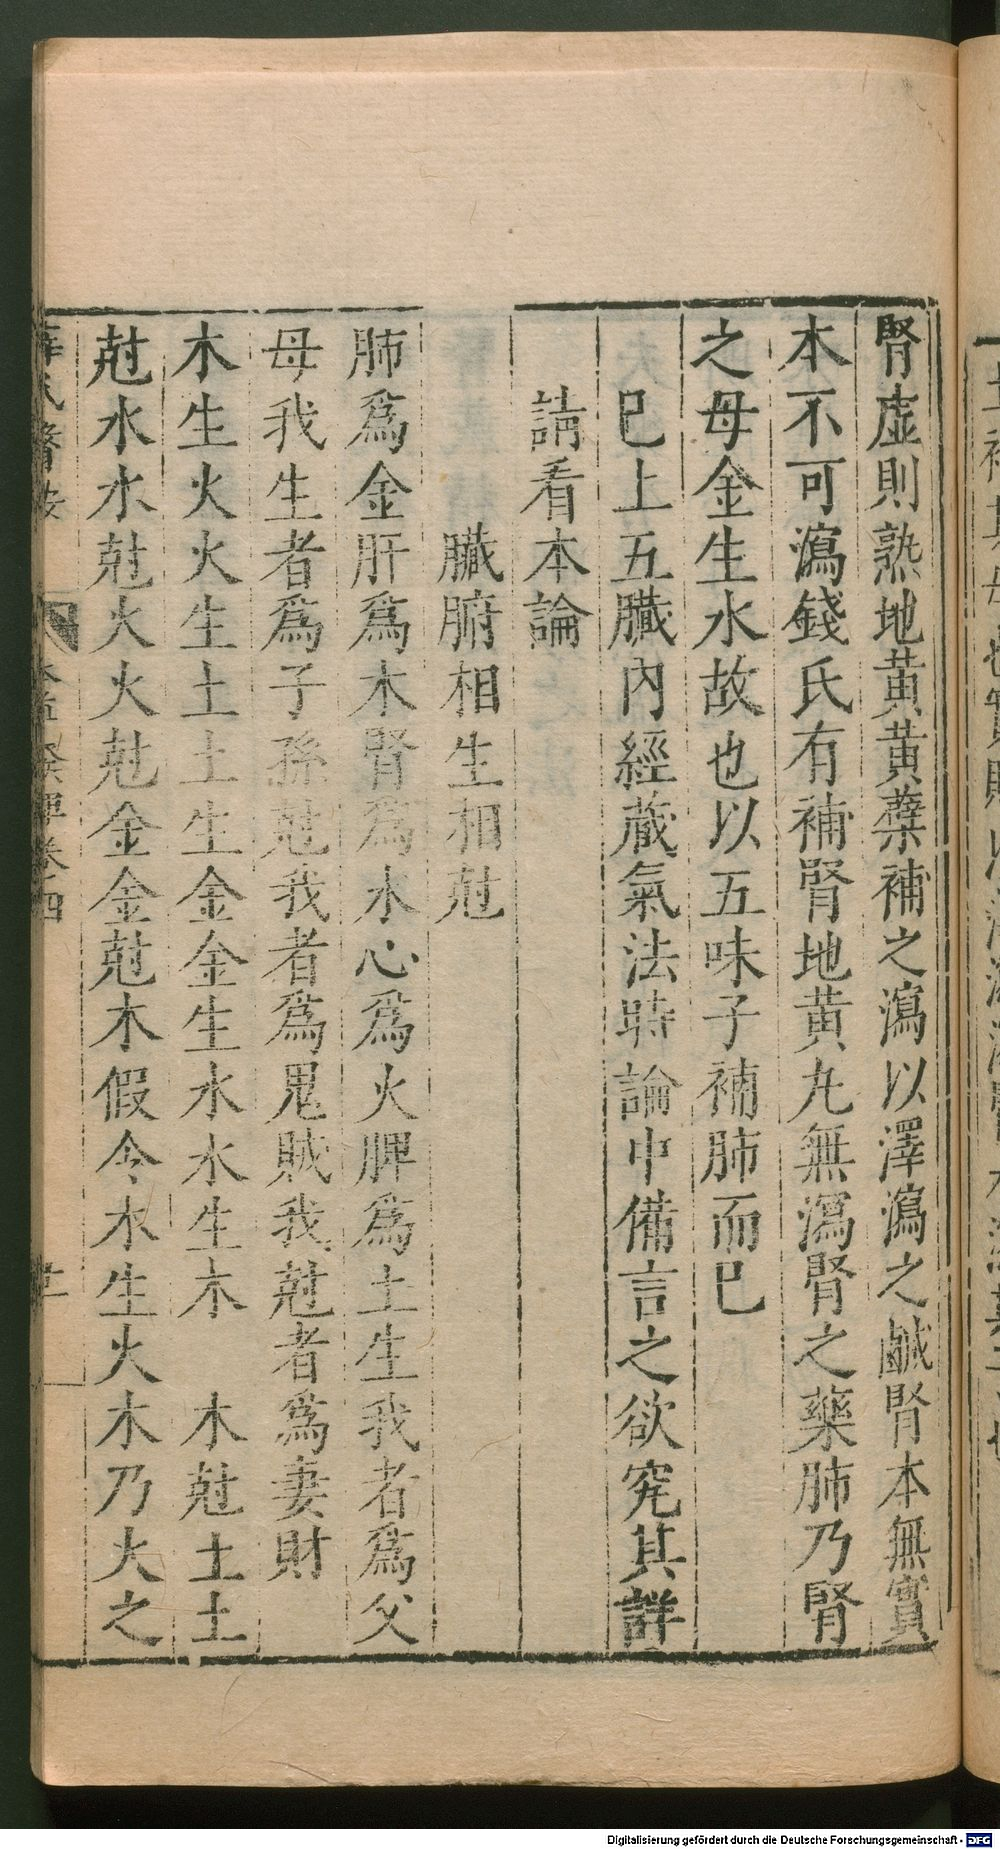 腎虛則熟地黃黃蘗補之瀉以澤瀉之鹹腎本無實
本不可瀉錢氏有補腎地黃丸無瀉腎之藥肺乃腎
之母金生水故也以五味子補肺而已
已上五臟內經藏氣法時論中備言之欲究其詳
請看本論
臟腑相生相尅
肺爲金肝爲木腎爲水心爲火脾爲土生我者爲父
母我生者爲子孫尅我者爲鬼賊我尅者爲妻財
木生火火生土土生金金生水水生木　木尅土土
尅水水尅火火尅金金尅木假令木生火木乃火之
Digitalisierung gefördert durch die Deutsche Forschungsgemeinschaft - DFG